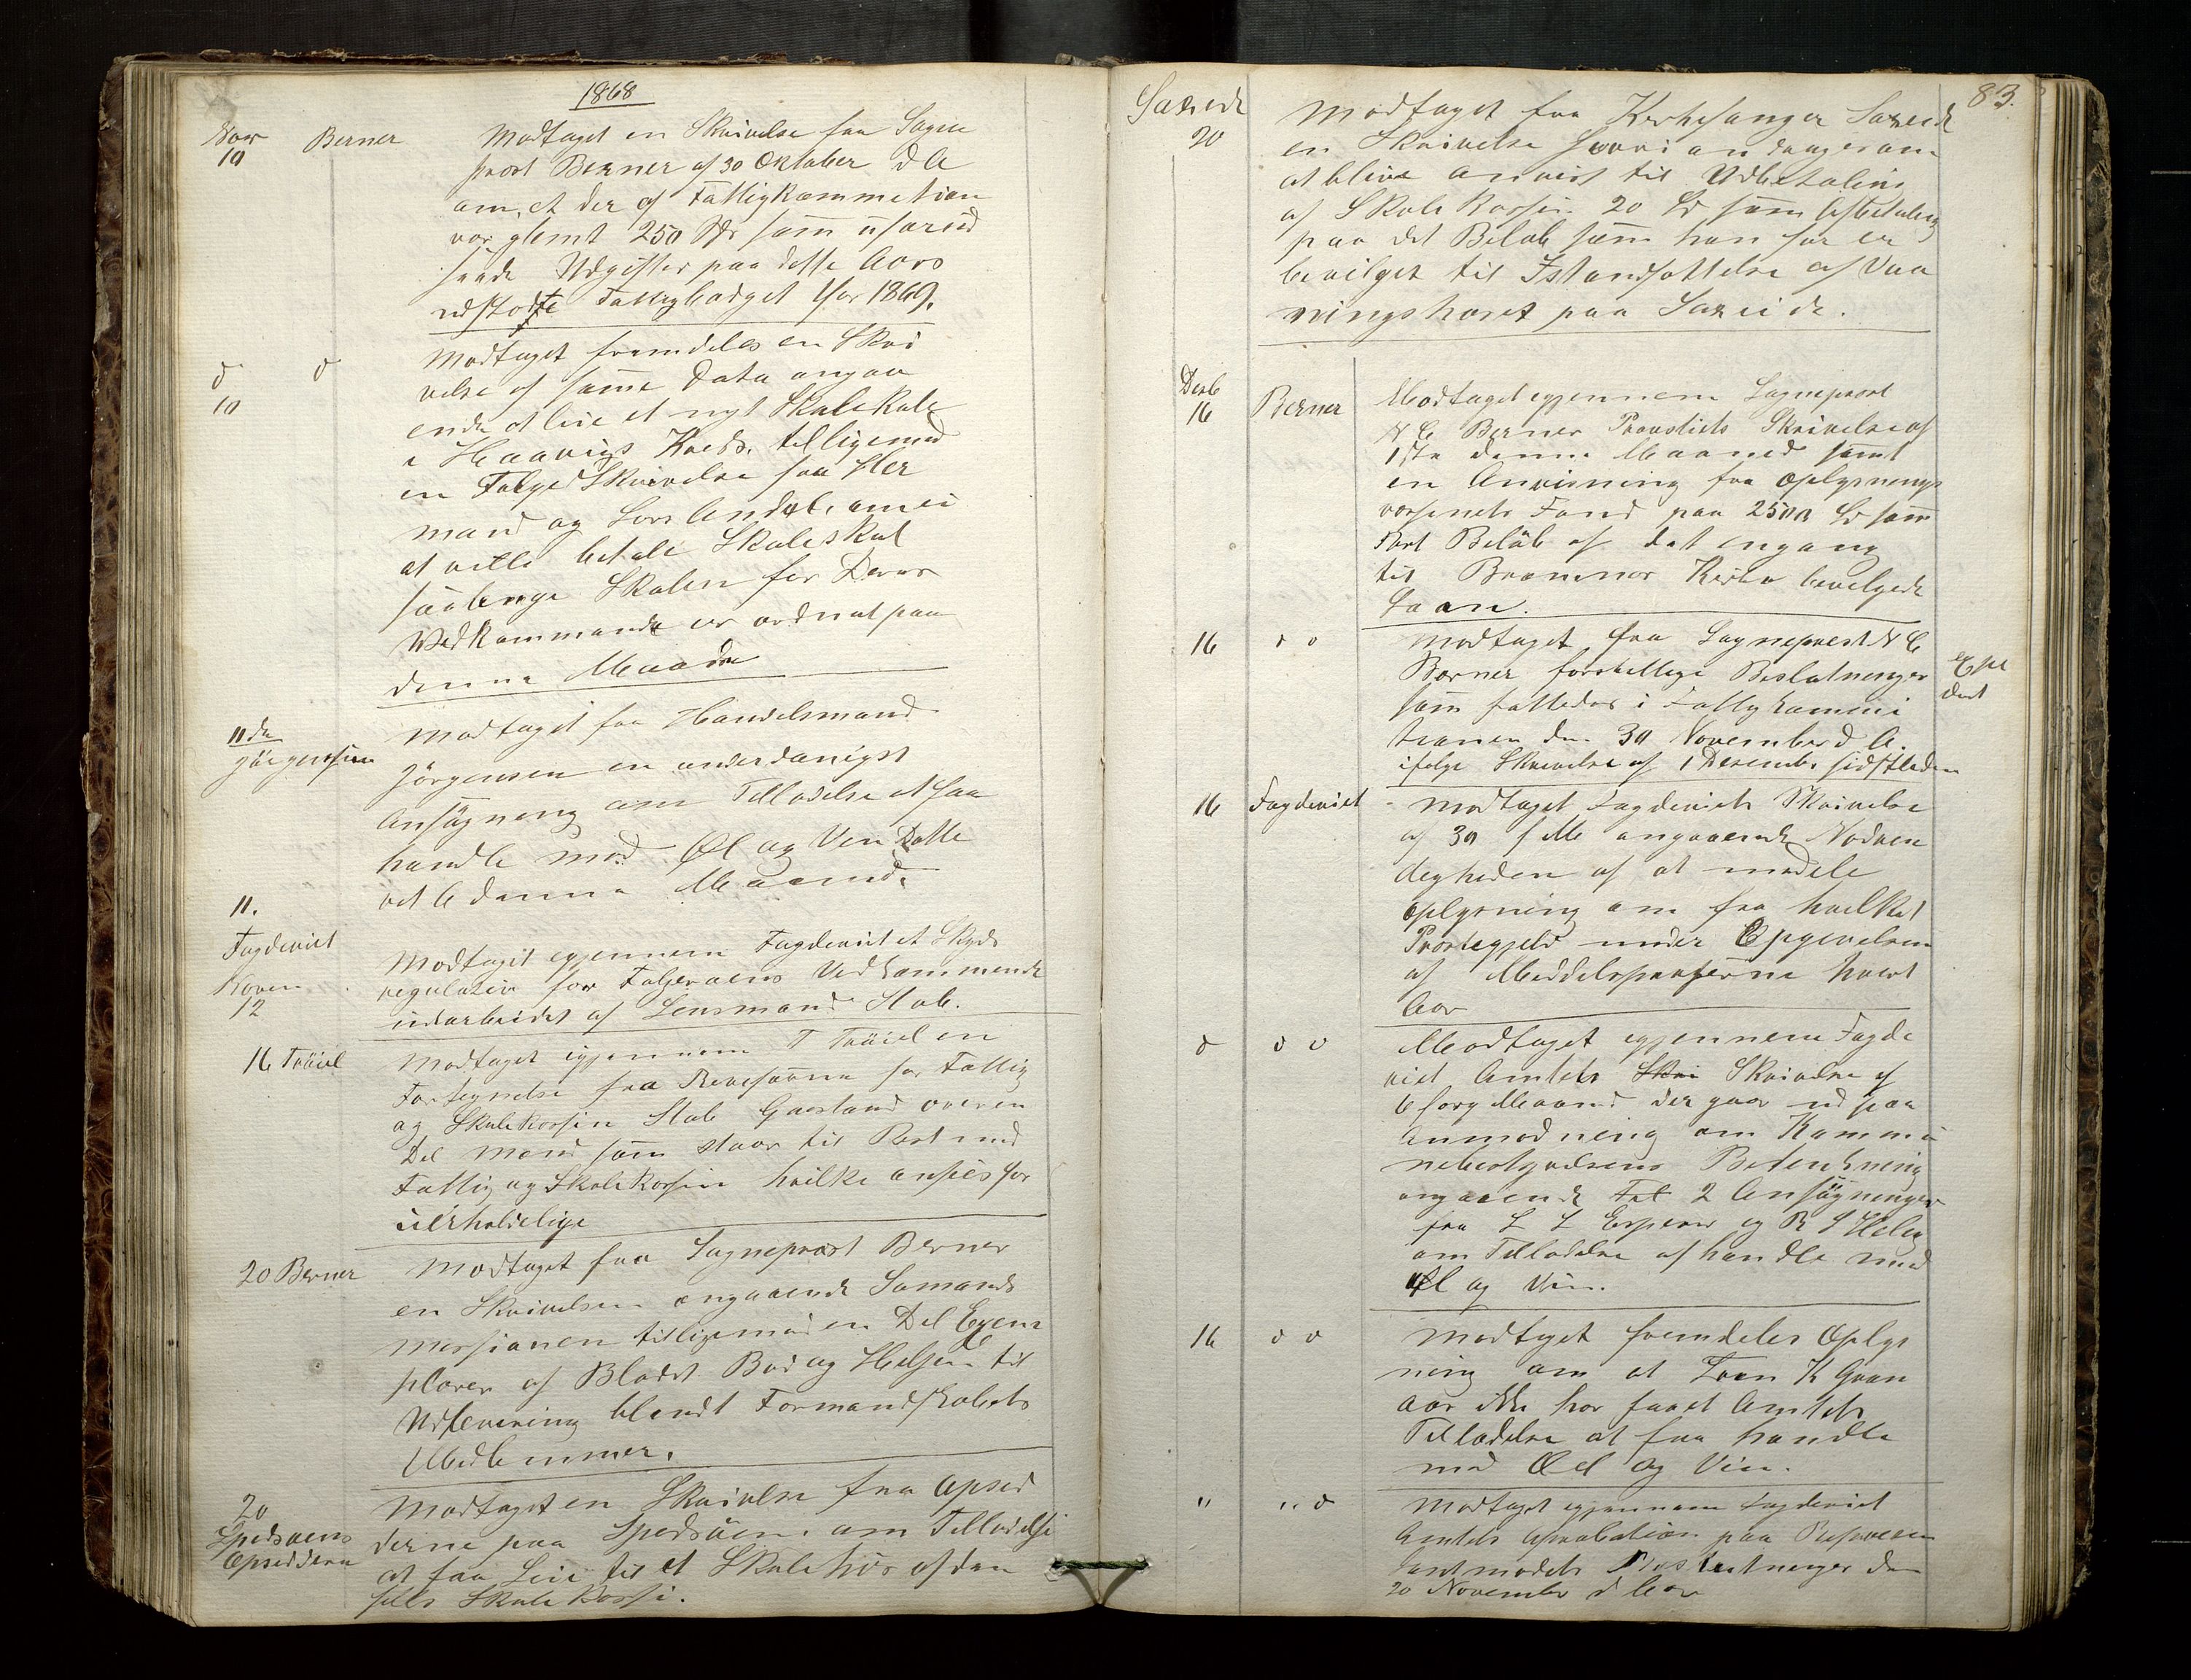 1868
Nov
10
Berner
Modtaget en Skrivelse fra Sogne
prest Berner af 30 Oktober d A
om, at der af Fattigkommetion
var glemt 250 Spd som uforud
seede Udgifter paa dette Aars
Fattigbudget for 1869.
d
10
d
Modtaget fremdeles en Skri
velse af samme Data angaa
ende at leie et nyt Skolelokale
i Haavigs Kreds, tilligemed
en Følge Skrivelse fra Her
mand og Lars om ei
at ville betale Skoleskat
saalenge Skolen for Deres
Vedkommande er ordnet paa
denne Maade
11 de
Jörgensen
Modtaget fra Handelsmand
Jörgensen en underdanigst
Ansögning om Tilladelse at faa
handle med Øl og Vin Datte
ret 6 denne Maaned.
11.
Fogderiet
Noven
12
Modtaget gjennem Fogderiet et Skyds
regulativ for Vedkommende
udarbeidet af Lensmand Hals.
16 Träiel
Modtaget igjennem T Träiel en
Fortegnelse fra Revisorene for Fattig
og Skolekassen Gaarstand over en
Del Mand som staar til Rest med
Fattig og Skolekassen hvilke ansees for
uerholdelige
20 Berner
Modtaget fra Sogneprest Berner
en Skrivelsen angaaende Sømands
messionen tilligemed en Del Exem
plarer af Bladet Bud og Helsen til
Udlevering blandt Formandskabets
Medlemmer.
20
Spedsøens
Opsidderne
Modtaget en Skrivelse fra Opsid
derne paa Spedsöen om Tilladelse
at faa Leie til et Skolehus af den
fells Skolekasse.
83.
Saxeide
20
Modtaget fra Kirkesanger Saxeide
en Skrivelse hvori an drager om
at blive anvist til Udbetaling
af Skolekassen 20 Sp som Afbetaling
paa det Beløb som han har er
bevilget til Istandsættelse af Vaa
ningshuset paa Saxeide.
Desb
16
Berner
Modtaget gjennem Sogneprest
N C Berner Provstiets Skrivelse af
1ste denne Maaned samt
en Anvisning fra Oplysnings
væsenets Fond paa 2500 Sp som
Rest Beløb af det engang
til Brønnø Kirke bevilgede
Laan.
16
d d
Modtaget fra Sogneprest N C
Berner forskellige Beslutninger
som fattedes i Fattigkommi
tionen den 30 November d A.
ifølge Skrivelse af 1 Desember sidstleden
Expe
dert
16
Fogderiet
Modtaget Fogderiets Skrivelse
af 30 f M angaaende Nødven
digheden af at meddele
Oplysning om fra hvilket
Prestegjeld under Opgivelsen
af Middelspriserne hvert
Aar
d
d d
Modtaget gjennem Fogde
riet Amtets Skri Skrivelse af
6 forg Maaned der gaar ud paa
Anmodning om Kommu
nebestyrelsens Betenkning
angaaende 2 Ansøgninger
fra L L Espenes og R
om Tilladelse at handle med
Øl og Vin.
16
d d
Modtaget fremdeles Oplys
ning om at K
aar ikke har faaet Amtets
Tilladelse at faa handle
med Øel og Vin.
"
" d
Modtaget gjennem Fogderiet
Amtets Aprobation paa Represen
tantmødets Beslutninger den
20 November d Aar